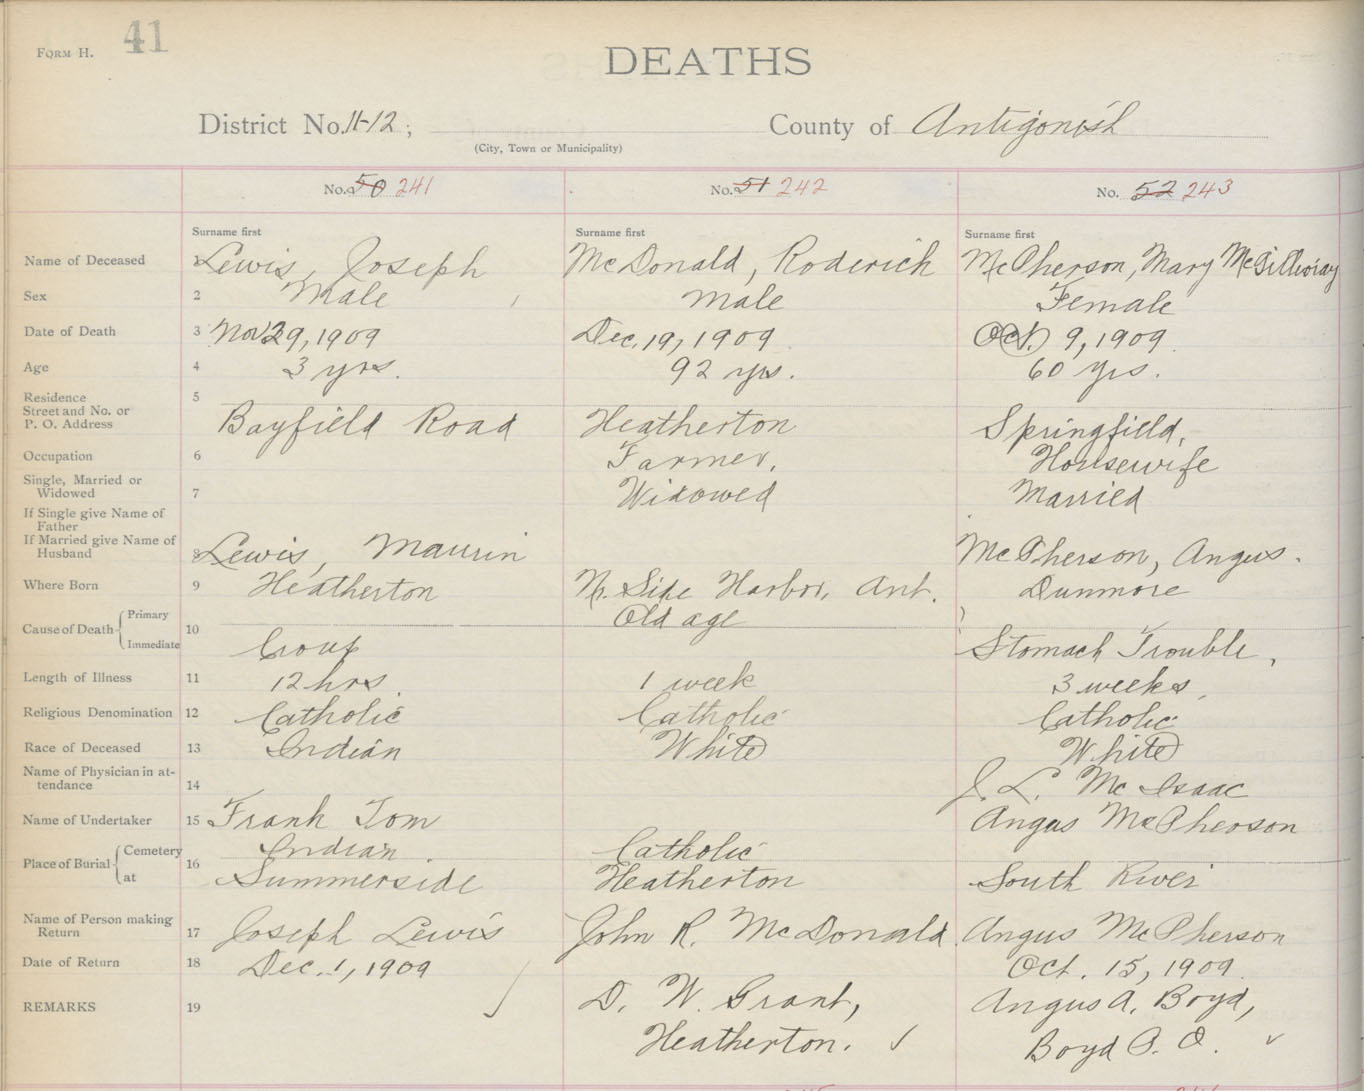 FORM H. 41
DEATHS
District No. 11-12; County of Antigonish
(City, Town or Municipality)
No. 50 241 No. 51 242 No. 52 243
Surname first Surname first Surname first
Name of Deceased 1 Lewis, Joseph McDonald, Roderick McPherson, Mary McGillivray
Sex 2 Male Male Female
Date of Death 3 Nov 29, 1909 Dec. 19, 1909 Oct. 9, 1909
Age 4 3 yrs. 92 yrs. 60 yrs.
Residence 5
Street and No. or
P. O. Address Bayfield Road Heatherton Springfield,
Occupation 6 Farmer, Housewife
Single, Married or
Widowed 7 Widowed Married
If Single give Name of
Father
If Married give Name of
Husband 8 Lewis, Maurin McPherson, Angus.
Where Born 9 Heatherton N. Side Harbor, Ant. Dunmore
Cause of Death Primary 10 Old age
Immediate Croup Stomach Trouble,
Length of Illness 11 12 hrs. 1 week 3 weeks,
Religious Denomination 12 Catholic Catholic Catholic
Race of Deceased 13 Indian White White
Name of Physician in at-
tendance 14 J. L. McIsaac
Name of Undertaker 15 Frank Tom Angus McPherson
Place of Burial Cemetery 16 Indian. Catholic
at Summerside Heatherton South River
Name of Person making
Return 17 Joseph Lewis John R. McDonald Angus McPherson
Date of Return 18 Dec. 1, 1909 Oct. 15, 1909
REMARKS 19 D. W. Grant, Angus A. Boyd,
Heatherton. Boyd P. O.